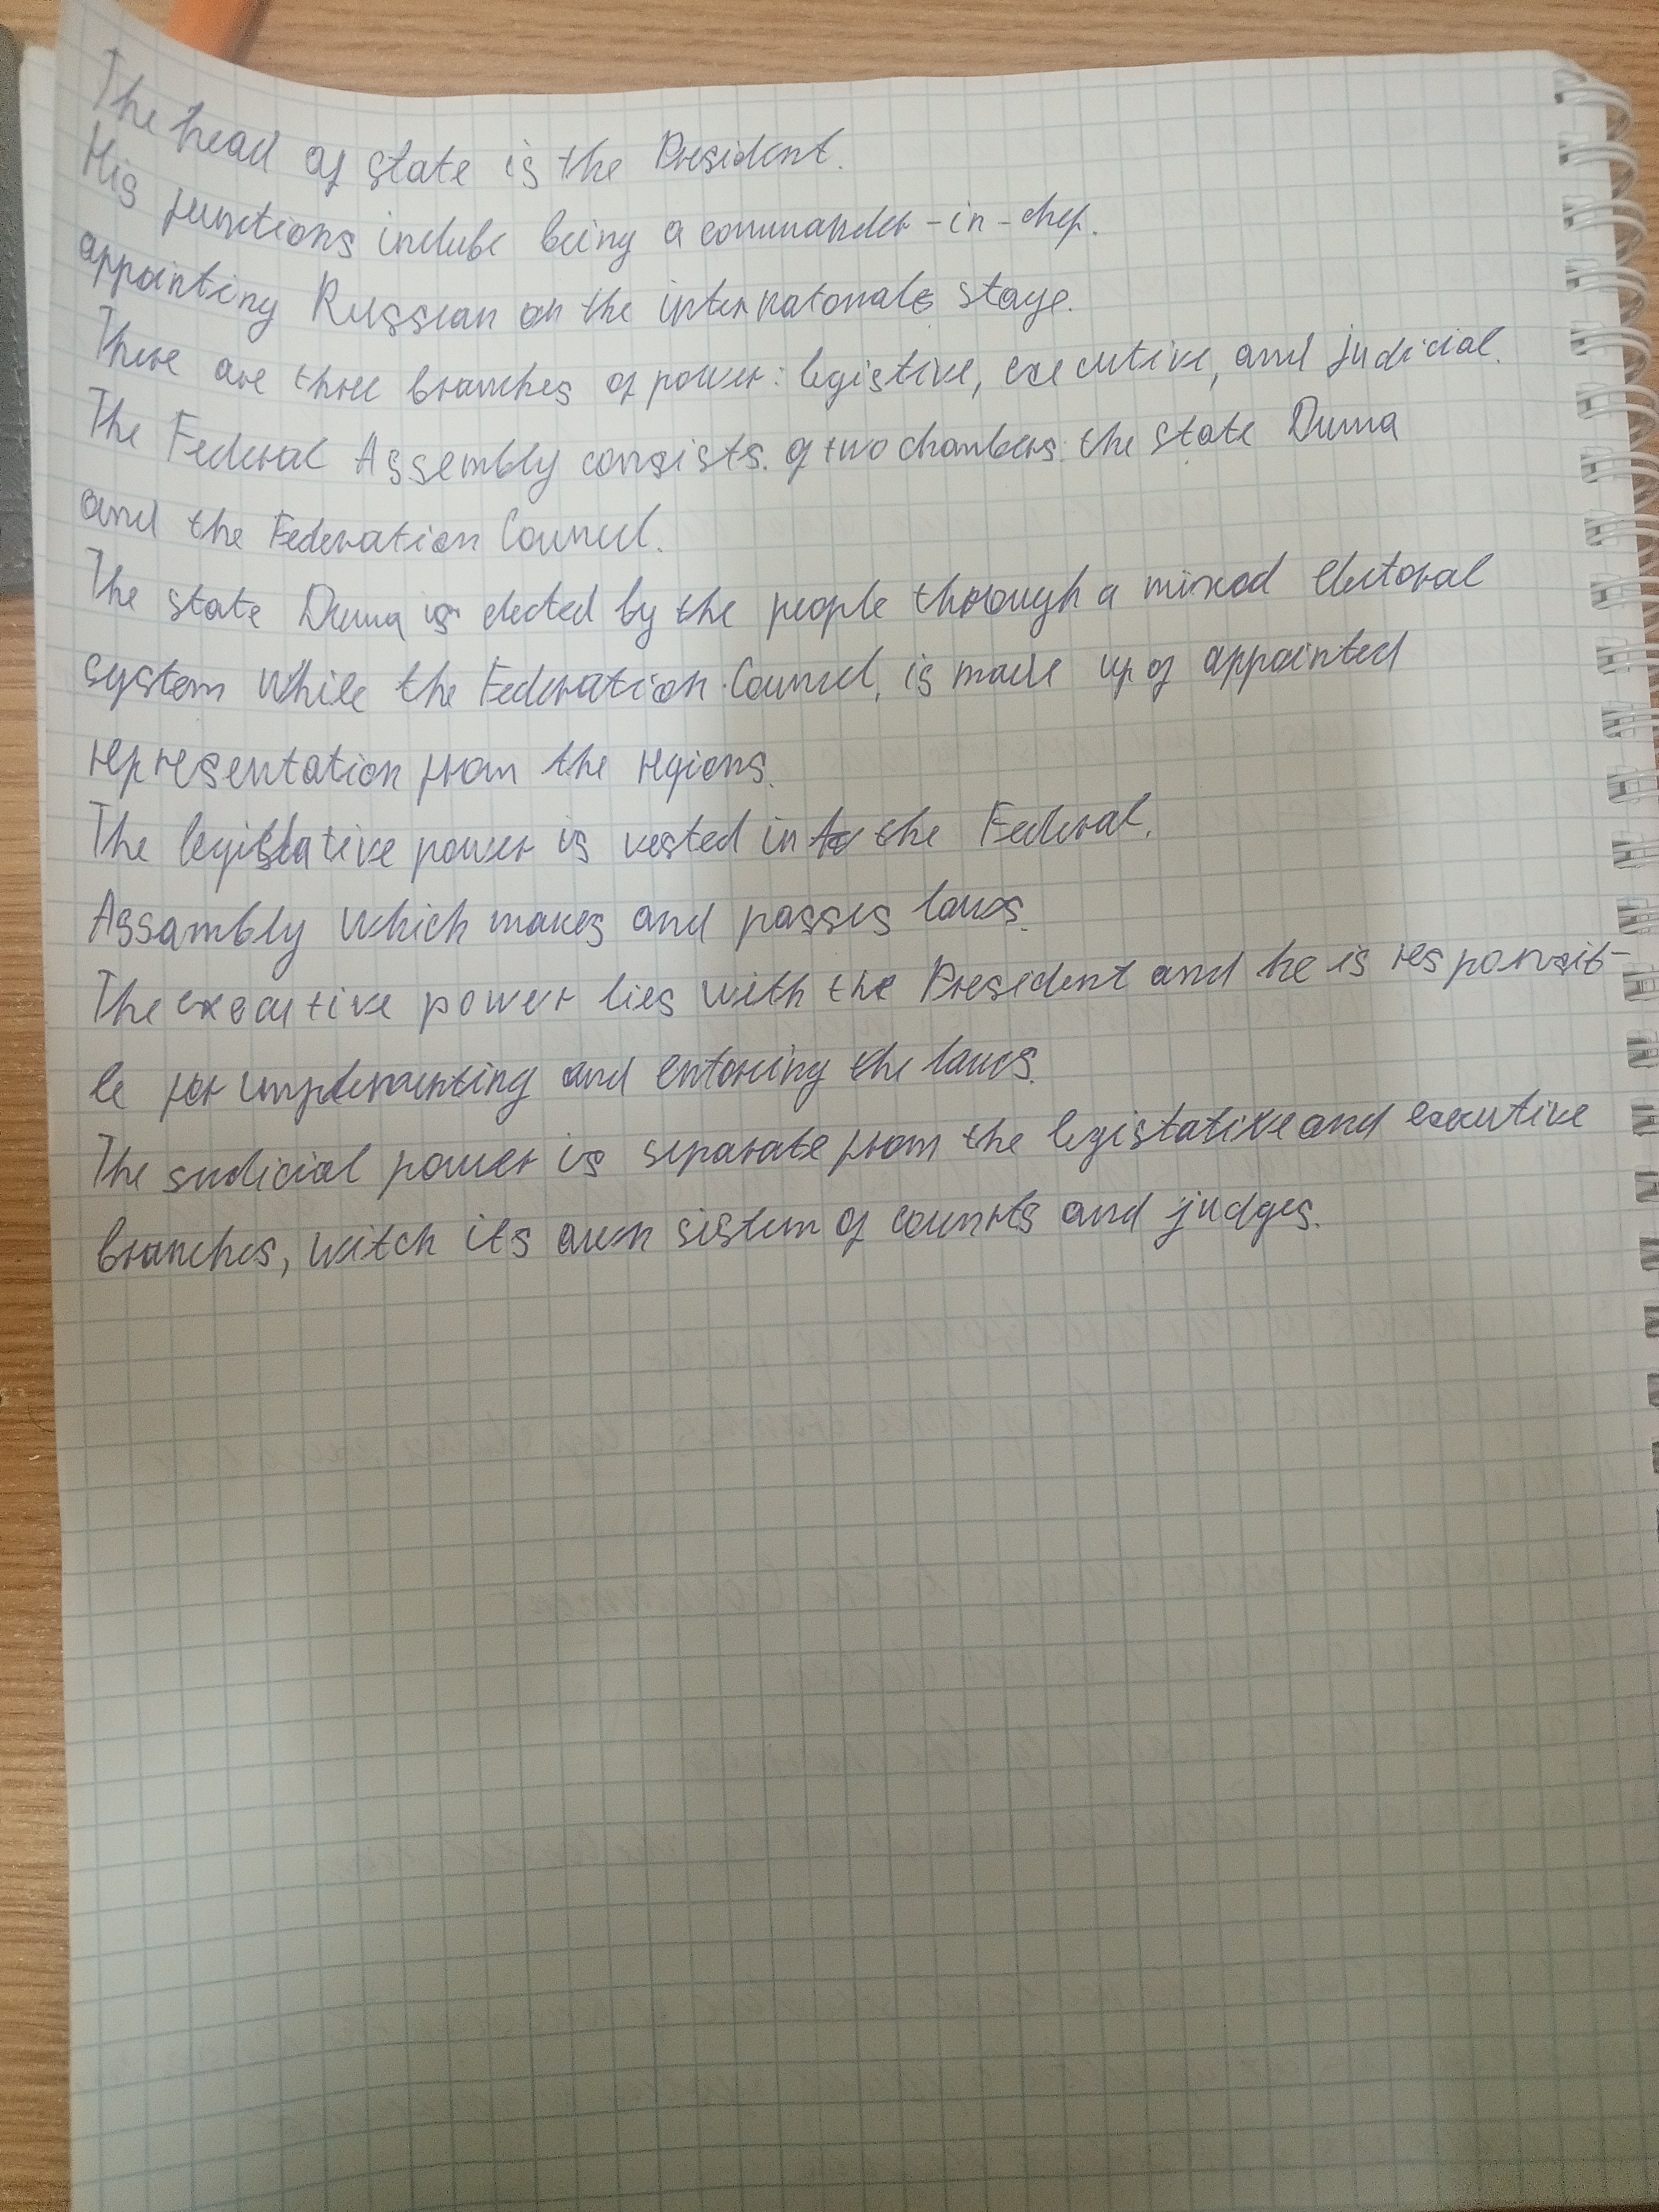 The head of state is the President.
His functions inclube being a commander-in-chef.
appointing Russian on the internatonale stage.
There are three branches of power: legistive, executive, and judicial.
The Federal Assembly consists. of two chambers: the state Duma
and the Federation Council.
The state Duma is elected by the people through a mixed electoral
system while the Federation Council, is made up of appointed
representation from the regions.
The legislative power is vested in the Federal.
Assambly which makes and passes laws.
The executive power lies with the President and he is responsib-
le for implementing and entorcing the laws.
The sudicial power is separate from the legistative and executive
branches, witch its own sistem of counrts and judges.